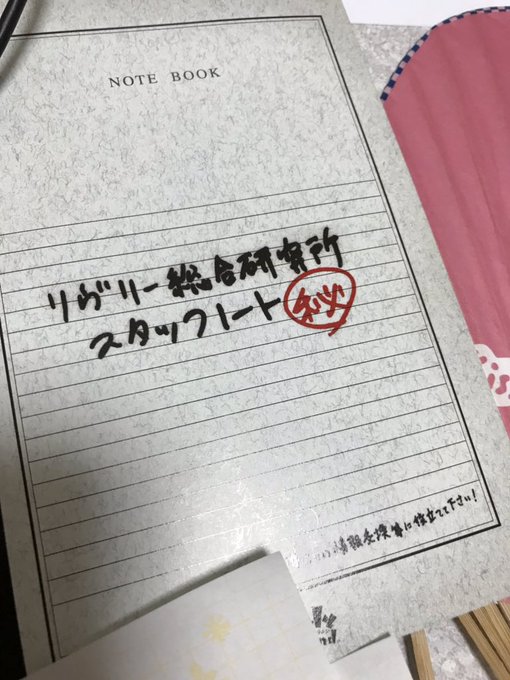 NOTE BOOK
リヴリー総合研究所
スタッフノート 秘
情報交換等に役立てて下さい!